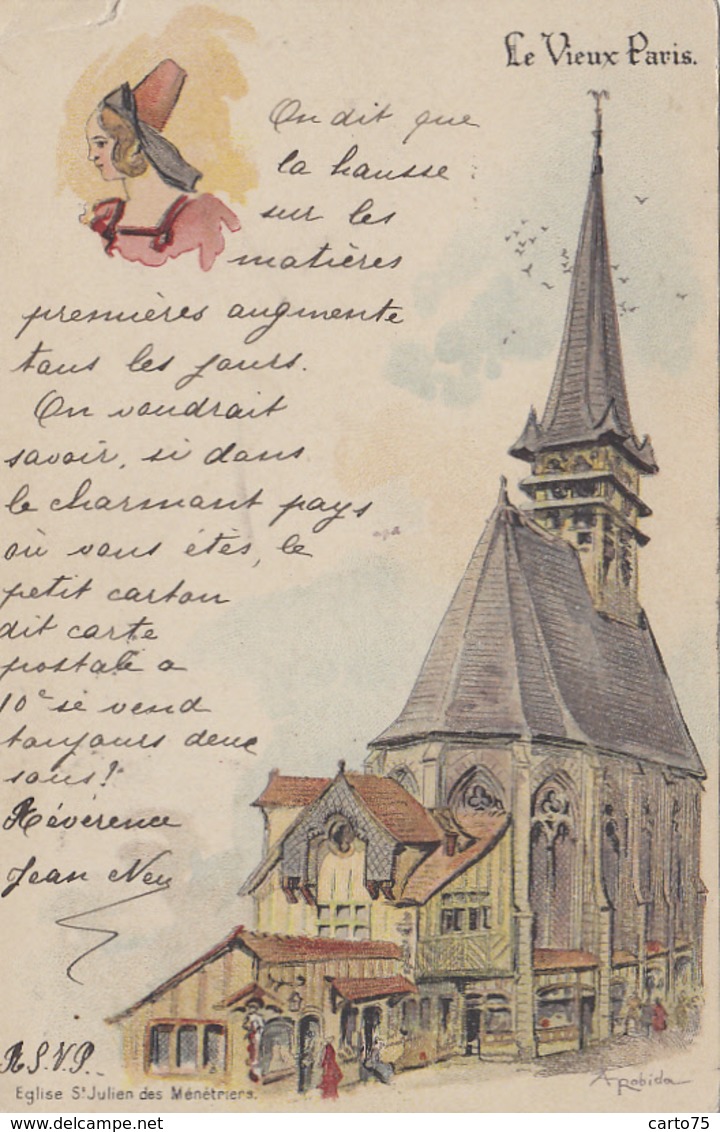 Le Vieux Paris.
On dit que
la hausse
sur les
matières
premières augmente
tous les jours.
On voudrait
savoir, si dans
le charmant pays
où vous êtes, le
petit carton
dit carte
postale a
10c se vend
toujours deux
sous!
Révérence
Jean Ney
R.S.V.P.
Eglise St Julien des Ménétriers.
A Robida
delcampe.net
carto75